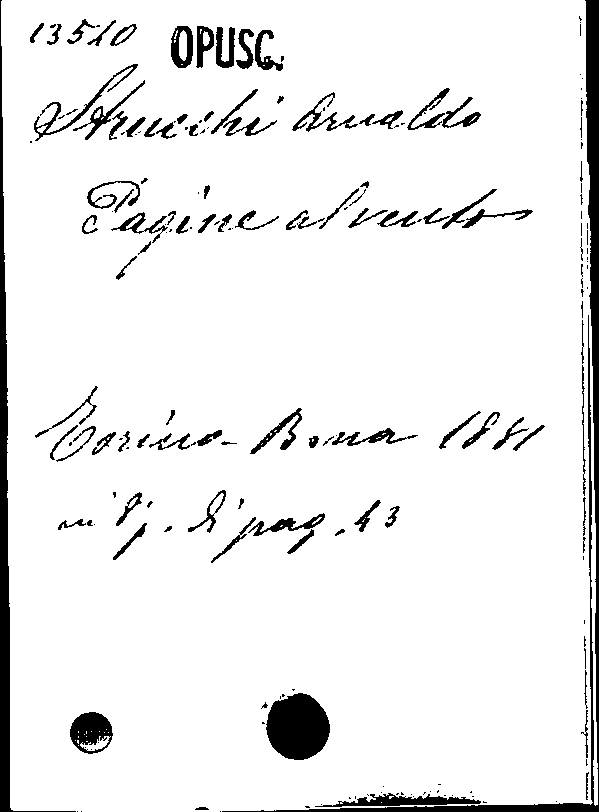 13510 OPUSC.
Strucchi Arnaldo
Pagine al vento
Torino - Bona 1881
in 8°p. di pag. 43